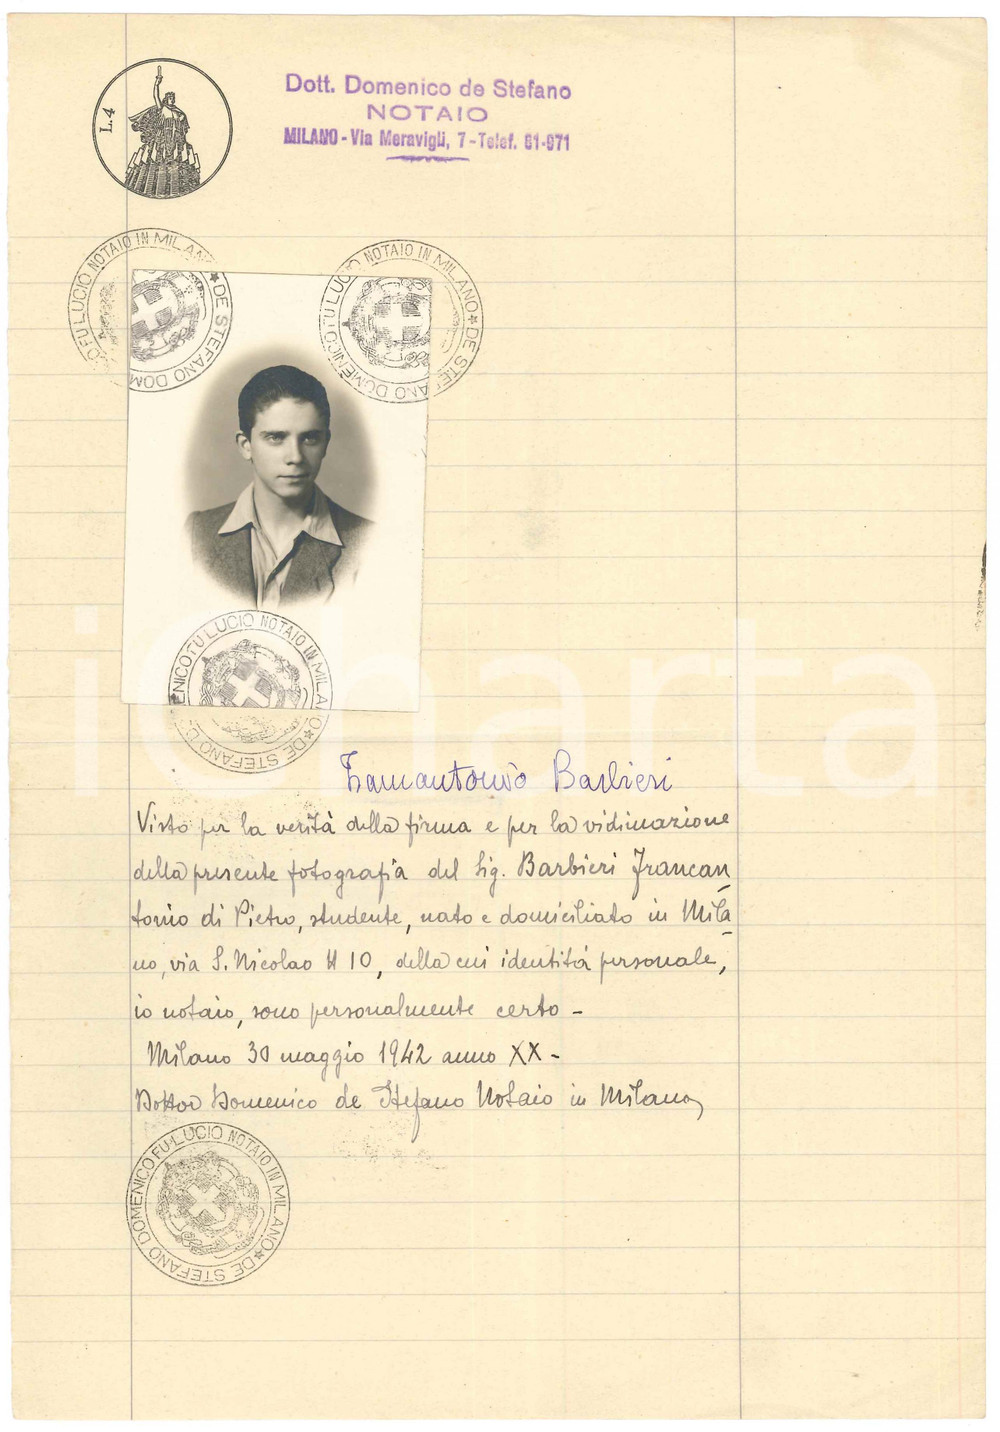 L.4
Dott. Domenico de Stefano
NOTAIO
MILANO - Via Meravigli, 7 - Telef. 81-971
DE STEFANO DOMENICO FU LUCIO NOTAIO IN MILANO
DE STEFANO DOMENICO FU LUCIO NOTAIO IN MILANO
DE STEFANO DOMENICO FU LUCIO NOTAIO IN MILANO
Francantonio Barbieri
Visto per la verità della firma e per la vidimazione
della presente fotografia del Sig. Barbieri Francan
tonio di Pietro, studente, nato e domiciliato in Mila
no, via S. Nicolao N 10, della cui identità personale,
io notaio, sono personalmente certo -
Milano 30 maggio 1942 anno XX -
Dottor Domenico de Stefano Notaio in Milano
DE STEFANO DOMENICO FU LUCIO NOTAIO IN MILANO